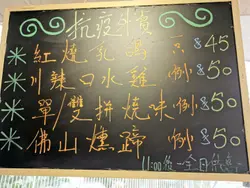 抗疫鬥貧
紅燒乳鴿 一只 $45
川辣口水雞 例 $50
單/雙拼燒味 例 $50
佛山燻蹄 例 $50
11:00後 全日供應